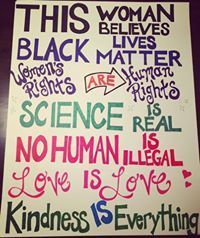 THIS WOMAN BELIEVES
BLACK LIVES MATTER
Women's Rights ARE Human Rights
SCIENCE IS REAL
NO HUMAN IS ILLEGAL
Love IS Love
Kindness IS Everything